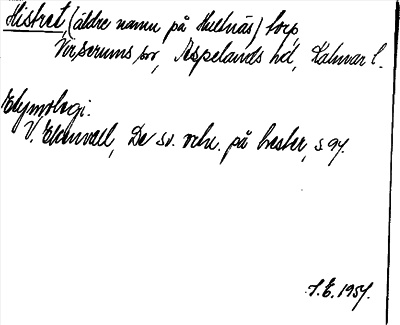 Mistret, (äldre namn på Hultnäs) torp,
Virserums sn, Aspelands hd, Kalmar l.
Etymologi.
V. Ekenvall, De sv. ortn. på hester, s 97.
J.E. 1957.